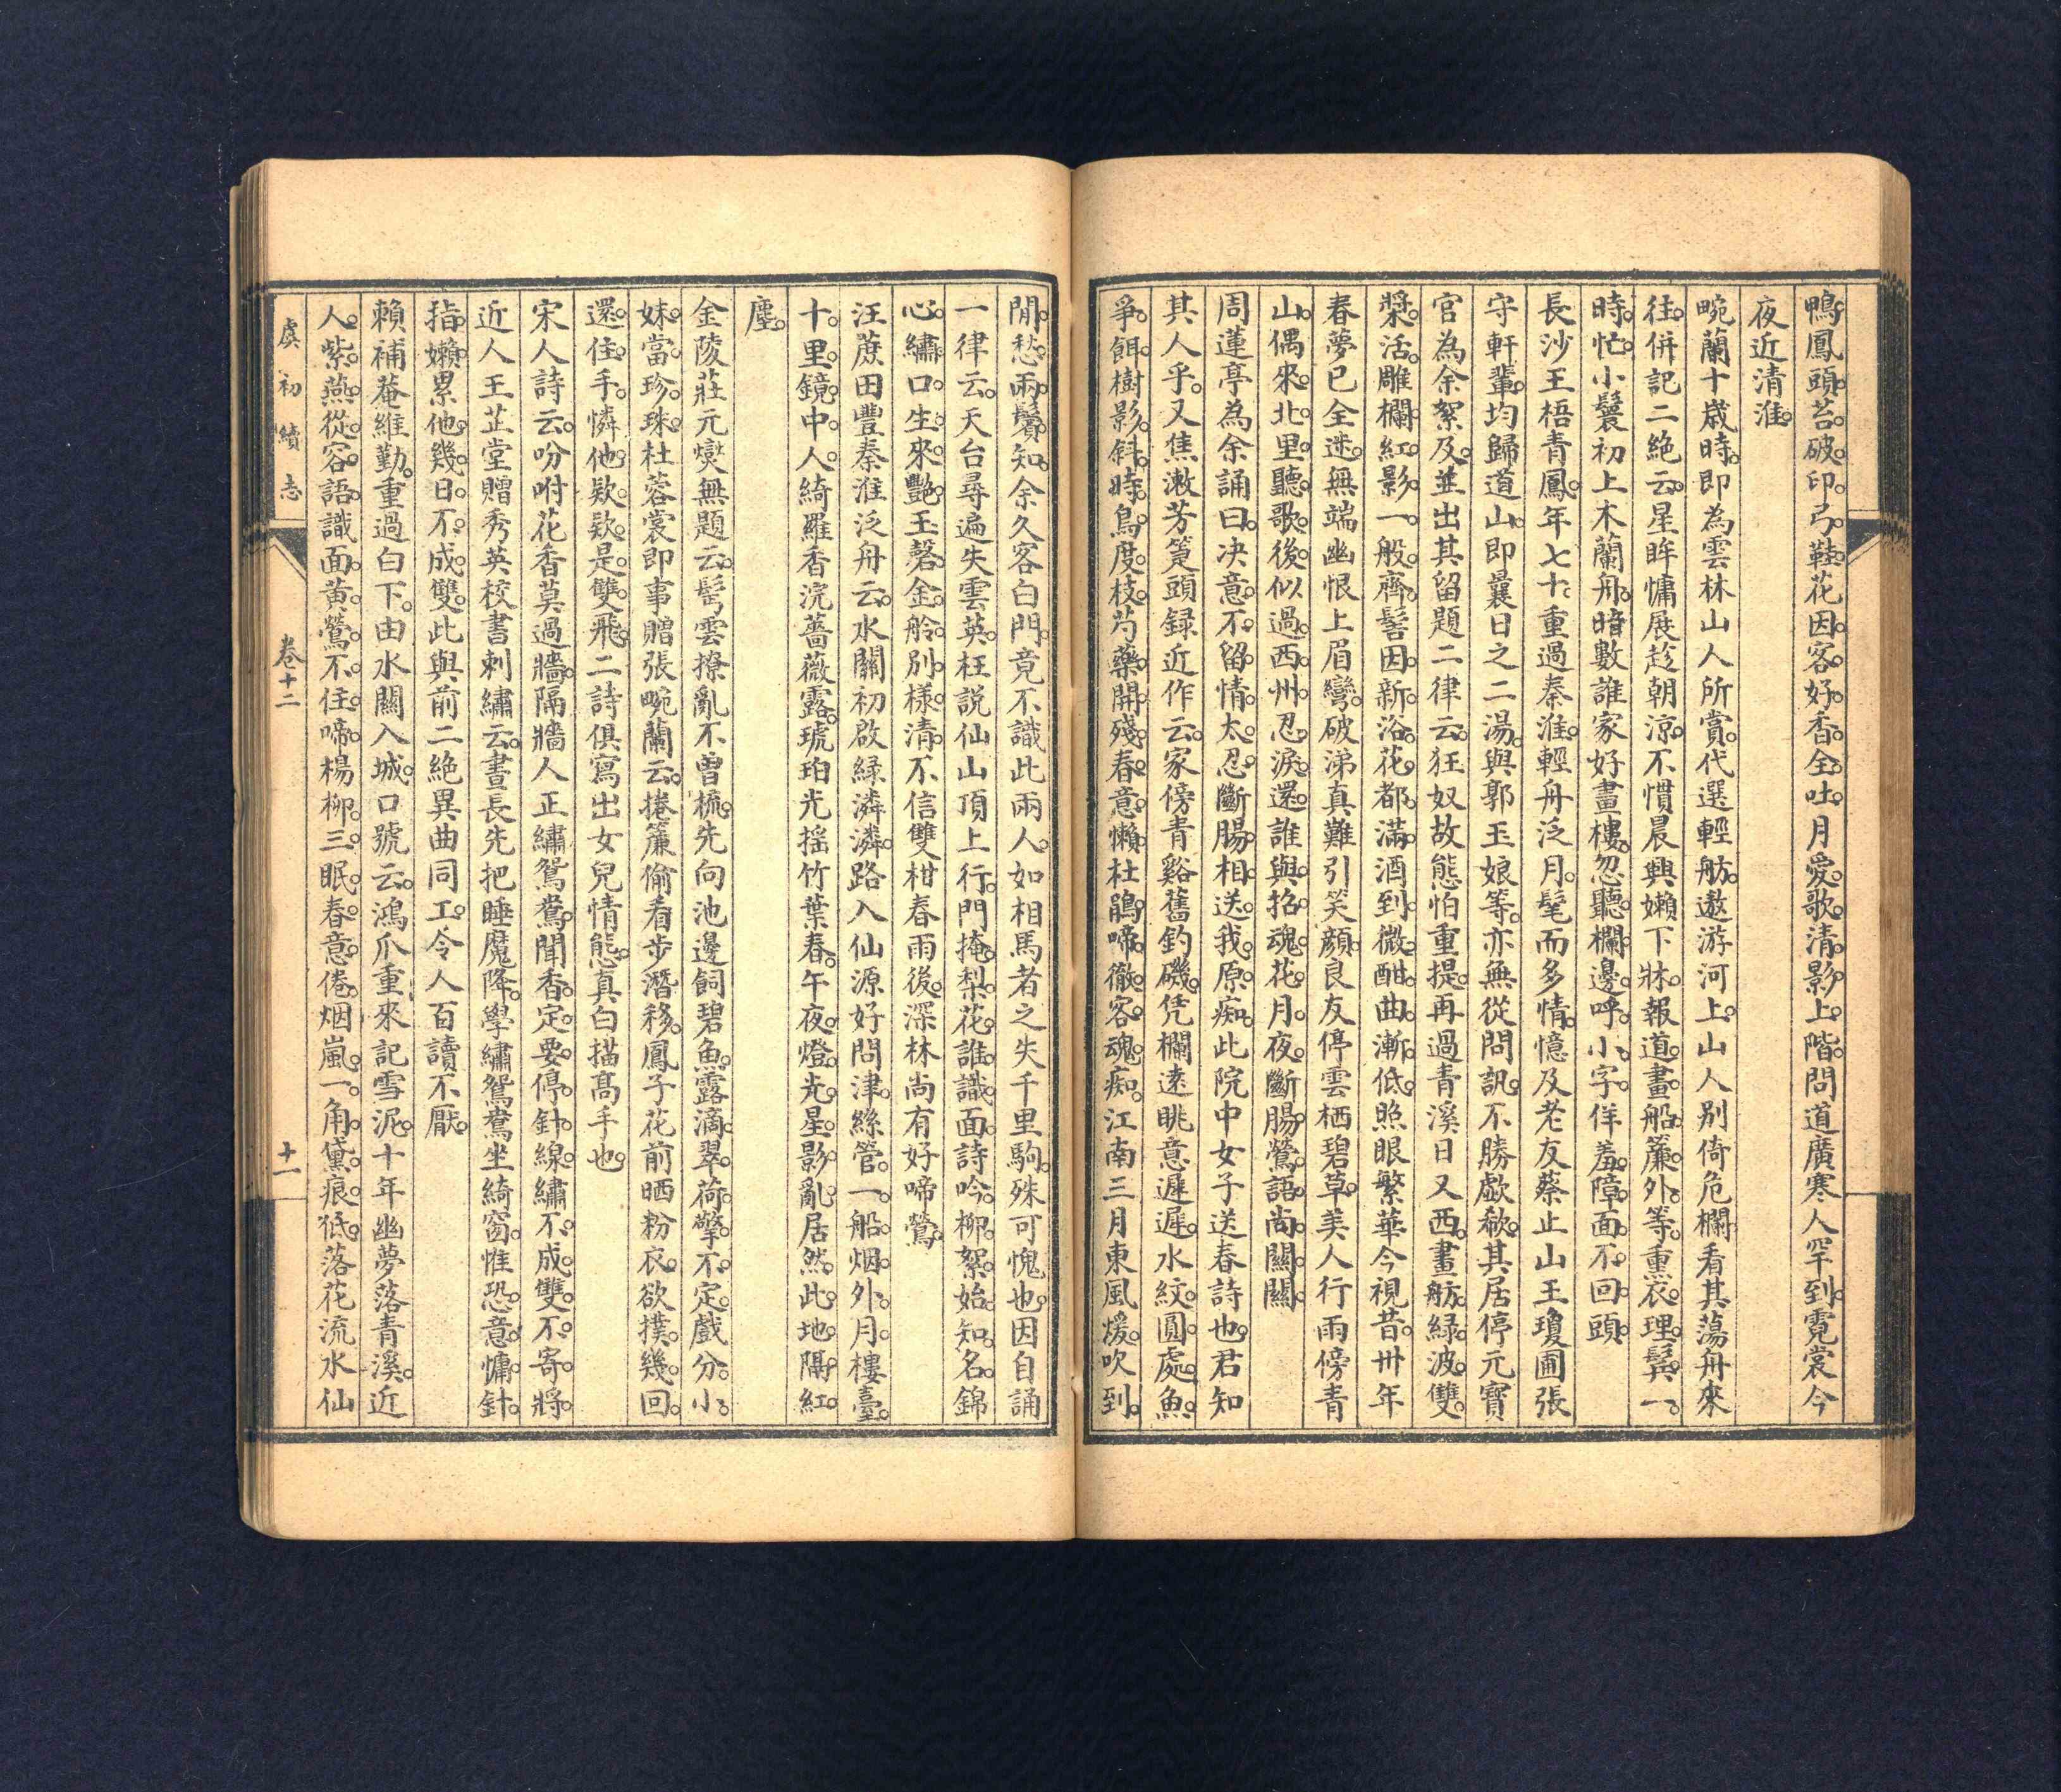 鴨鳳頭苔破印弓鞋花因客好香全吐月愛歌清影上階問道廣寒人罕到霓裳今
夜近清淮
畹蘭十歲時即為雲林山人所賞代選輕舫遨游河上山人別倚危欄看其蕩舟來
往併記二絕云星眸慵展趁朝涼不慣晨興嬾下牀報道畫船簾外等熏衣理髩一
時忙小鬟初上木蘭舟暗數誰家好畫樓忽聽欄邊呼小字佯羞障面不回頭
長沙王梧青鳳年七十重過秦淮輕舟泛月髦而多情憶及老友蔡止山王瓊圃張
守軒輩均歸道山即曩日之二湯與郭玉娘等亦無從問訊不勝歔欷其居停元寶
官為余絮及並出其留題二律云狂奴故態怕重提再過青溪日又西畫舫綠波雙
槳活雕欄紅影一般齊髻因新浴花都滿酒到微酣曲漸低照眼繁華今視昔卅年
春夢已全迷無端幽恨上眉彎破涕真難引笑顏良友停雲栖碧草美人行雨傍青
山偶來北里聽歌後似過西州忍淚還誰與招魂花月夜斷腸鶯語尚關關
周蓮亭為余誦曰决意不留情太忍斷腸相送我原痴此院中女子送春詩也君知
其人乎又焦漱芳箑頭録近作云家傍青谿舊釣磯凭欄遠眺意遲遲水紋圓處魚
爭餌樹影斜時鳥度枝芍藥開殘春意懶杜鵑啼徹客魂痴江南三月東風煖吹到
閒愁兩鬢知余久客白門竟不識此兩人如相馬者之失千里駒殊可愧也因自誦
一律云天台尋遍失雲英枉説仙山頂上行門掩梨花誰識面詩吟柳絮始知名錦
心繡口生來艷玉磬金舲別樣清不信雙柑春雨後深林尚有好啼鶯
汪蔗田豐秦淮泛舟云水關初啟緑潾潾路入仙源好問津絲管一船烟外月樓臺
十里鏡中人綺羅香浣薔薇露琥珀光摇竹葉春午夜燈光星影亂居然此地隔紅
塵
金陵莊元燮無題云髩雲撩亂不曾梳先向池邊飼碧魚露滴翠荷擎不定戲分小
妹當珍珠杜蓉裳即事贈張畹蘭云捲簾偷看步潛移鳳子花前晒粉衣欲撲幾回
還住手憐他欵欵是雙飛二詩俱寫出女兒情態真白描髙手也
宋人詩云吩咐花香莫過牆隔牆人正繡鴛鴦聞香定要停針線繡不成雙不寄將
近人王芷堂贈秀英校書刺繡云晝長先把睡魔降學繡鴛鴦坐綺窗惟恐意慵針
指嬾累他幾日不成雙此與前二絕異曲同工令人百讀不厭
賴補菴維勤重過白下由水關入城口號云鴻爪重來記雪泥十年幽夢落青溪近
人紫燕從容語識面黃鶯不住啼楊柳三眠春意倦烟嵐一角黛痕低落花流水仙
虞初續志
卷十二
十一